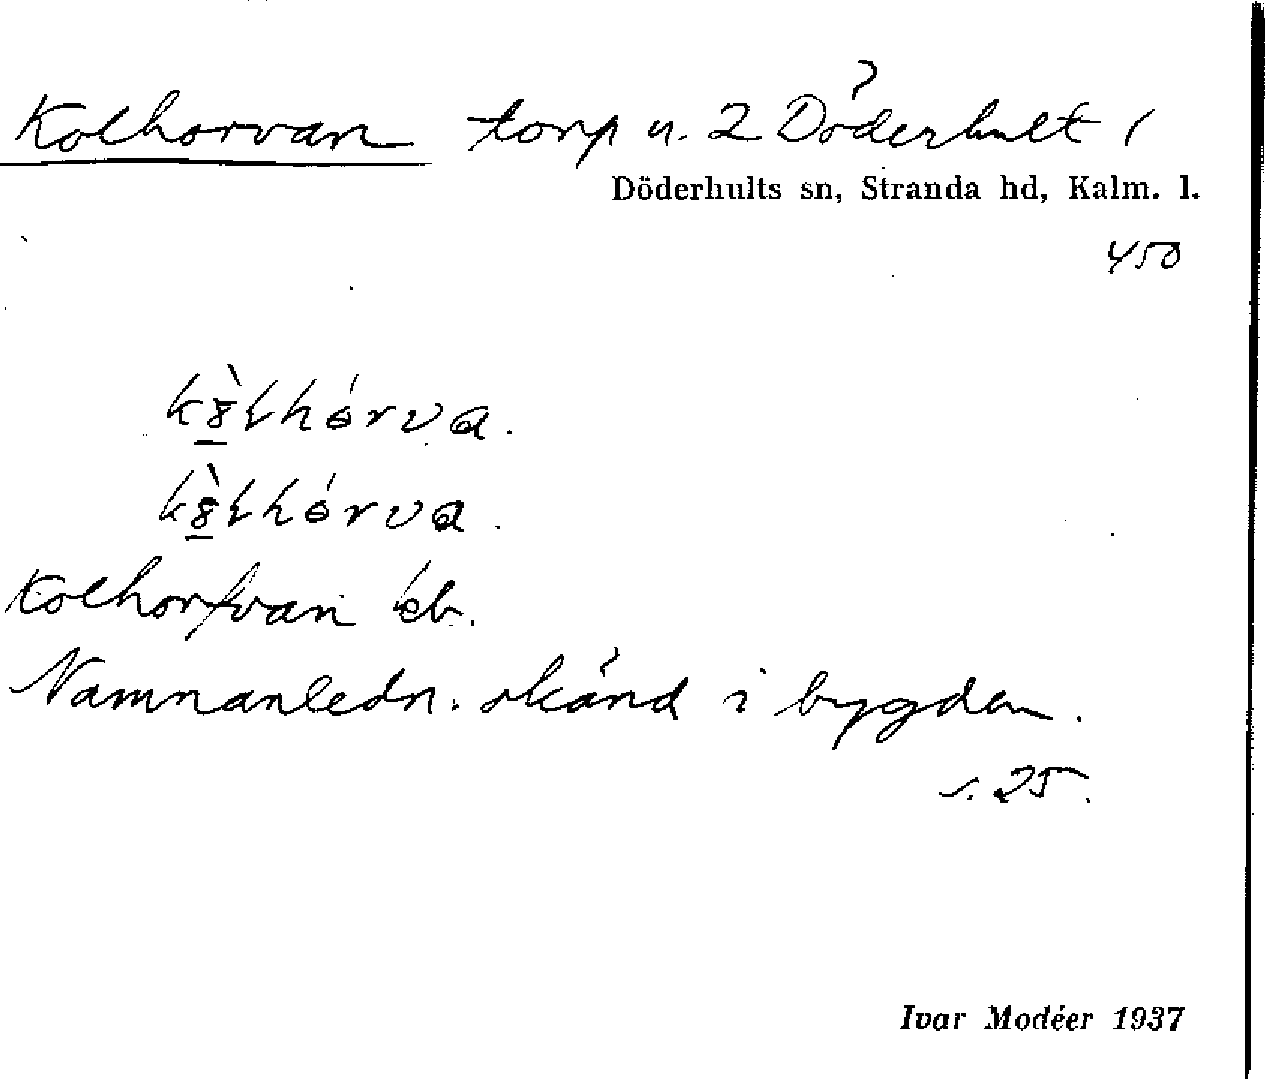 Kolhorvan torp u. 2 Döderhult 1
Döderhults sn, Stranda hd, Kalm. l.
450
Kolhorfvan kb.
Namnanledn. okänd i bygden.
s. 25.
Ivar Modéer 1937